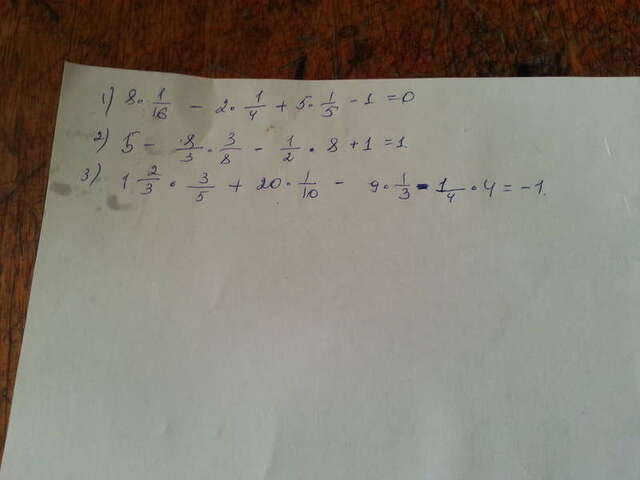 1) 8 · 1/16 - 2 · 1/4 + 5 · 1/5 - 1 = 0
2) 5 - 8/3 · 3/8 - 1/2 · 8 + 1 = 1.
3) 1 2/3 · 3/5 + 20 · 1/10 - 9 · 1/3 - 1/4 · 4 = -1.